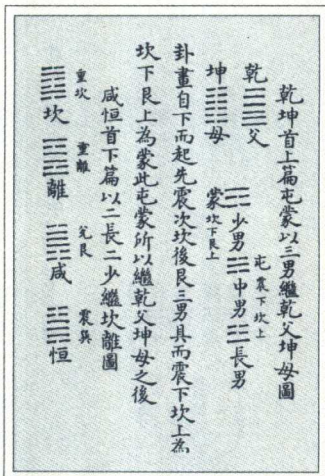 乾坤首上篇屯蒙以三男繼乾父坤母圖
乾䷀父
坤䷁母
屯震下坎上
☶少男☵中男☳長男
蒙坎下艮上
卦畫自下而起先震次坎後艮三男具而震下坎上為
坎下艮上為蒙此屯蒙所以繼乾父坤母之後
咸恒首下篇以二長二少繼坎離圖
重坎
䷜坎
重離
䷝離
兌艮
䷞咸
震巽
䷟恒